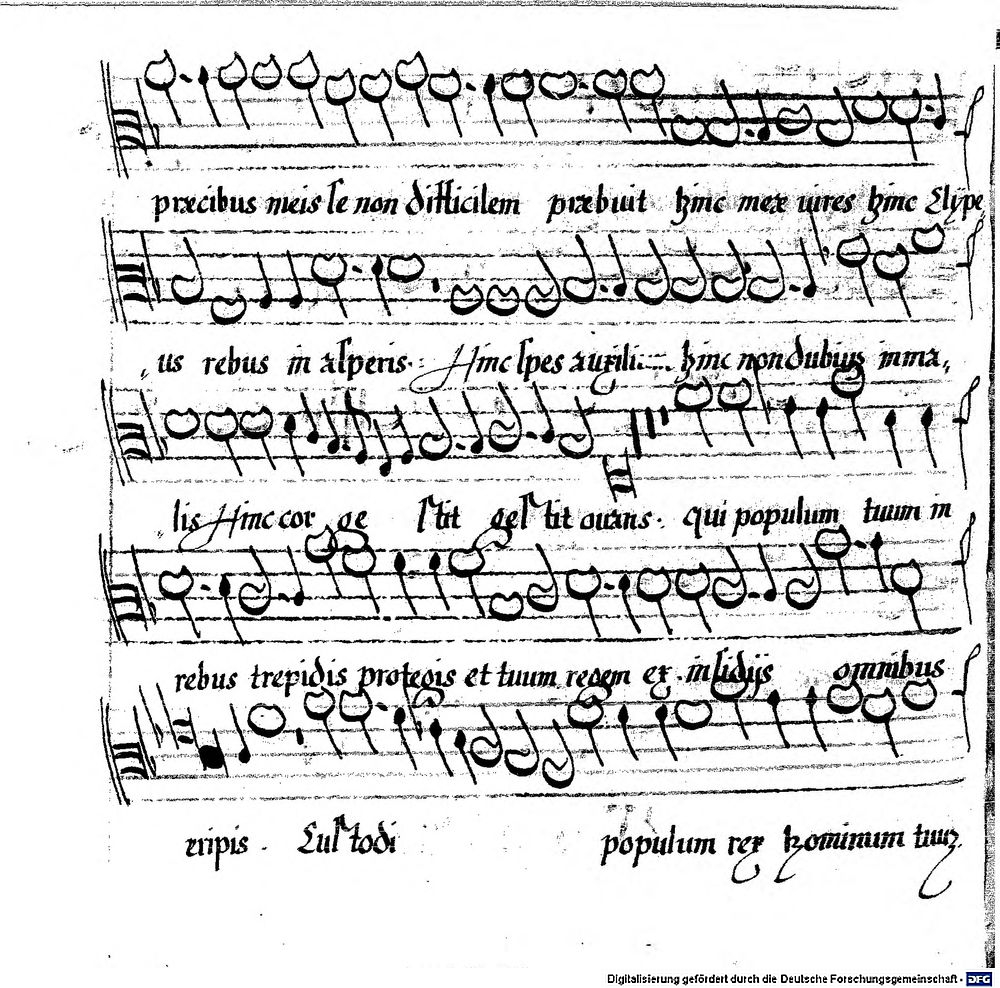 præcibus meis se non difficilem præbuit hinc meæ uires hinc Clype
us rebus in asperis. Hinc spes auxilii hinc non dubius in ma,
lis Hinc cor ge stit gestit ouans. qui populum tuum in
rebus trepidis protegis et tuum regem ex insidijs omnibus
eripis. Custodi populum rex hominum tuuz.
Digitalisierung gefördert durch die Deutsche Forschungsgemeinschaft - DFG